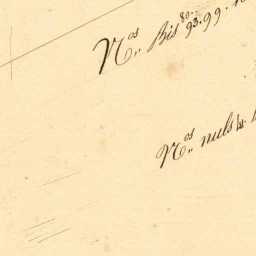 Nos Bis 80. 93. 99.
Nos nuls